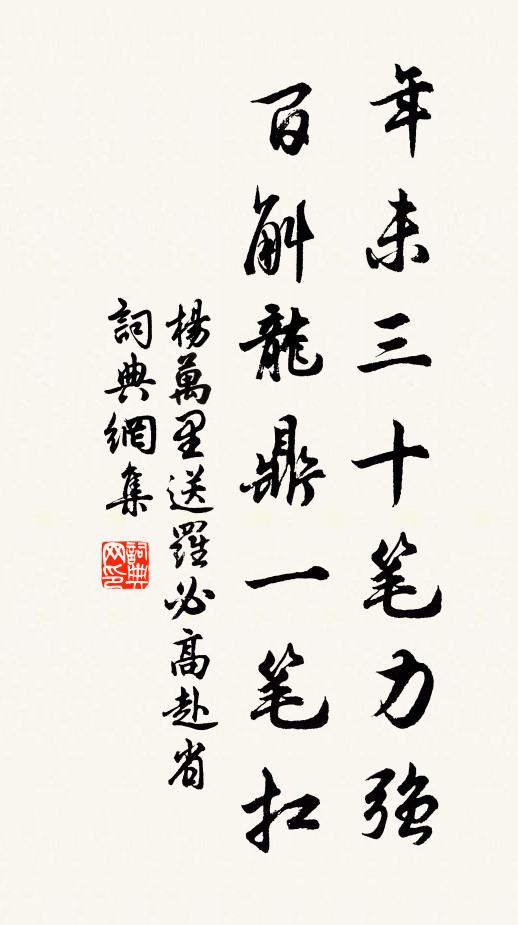 年未三十笔力强
百斛龍鼎一笔扛
楊萬里送羅必高赴省
詞典網集
詞典网印